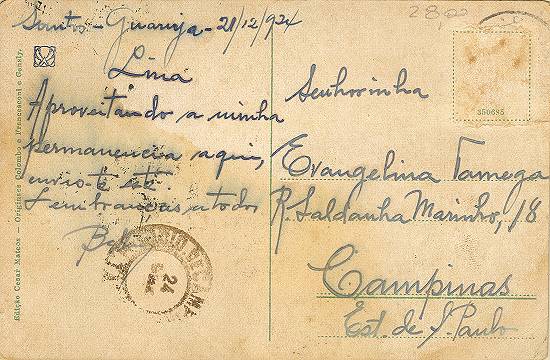 Santos - Guarujá - 21/12/924
28,00
Lina
Aproveitando a minha
permanencia aqui,
envio-te
Lembranças a todos
Senhorinha
350685
Evangelina Tamega
R. Saldanha Marinho, 18
Campinas
Est. de S. Paulo
24
Edição Cesar Mateos — Originaes Colombo e Francesconi e Consly.